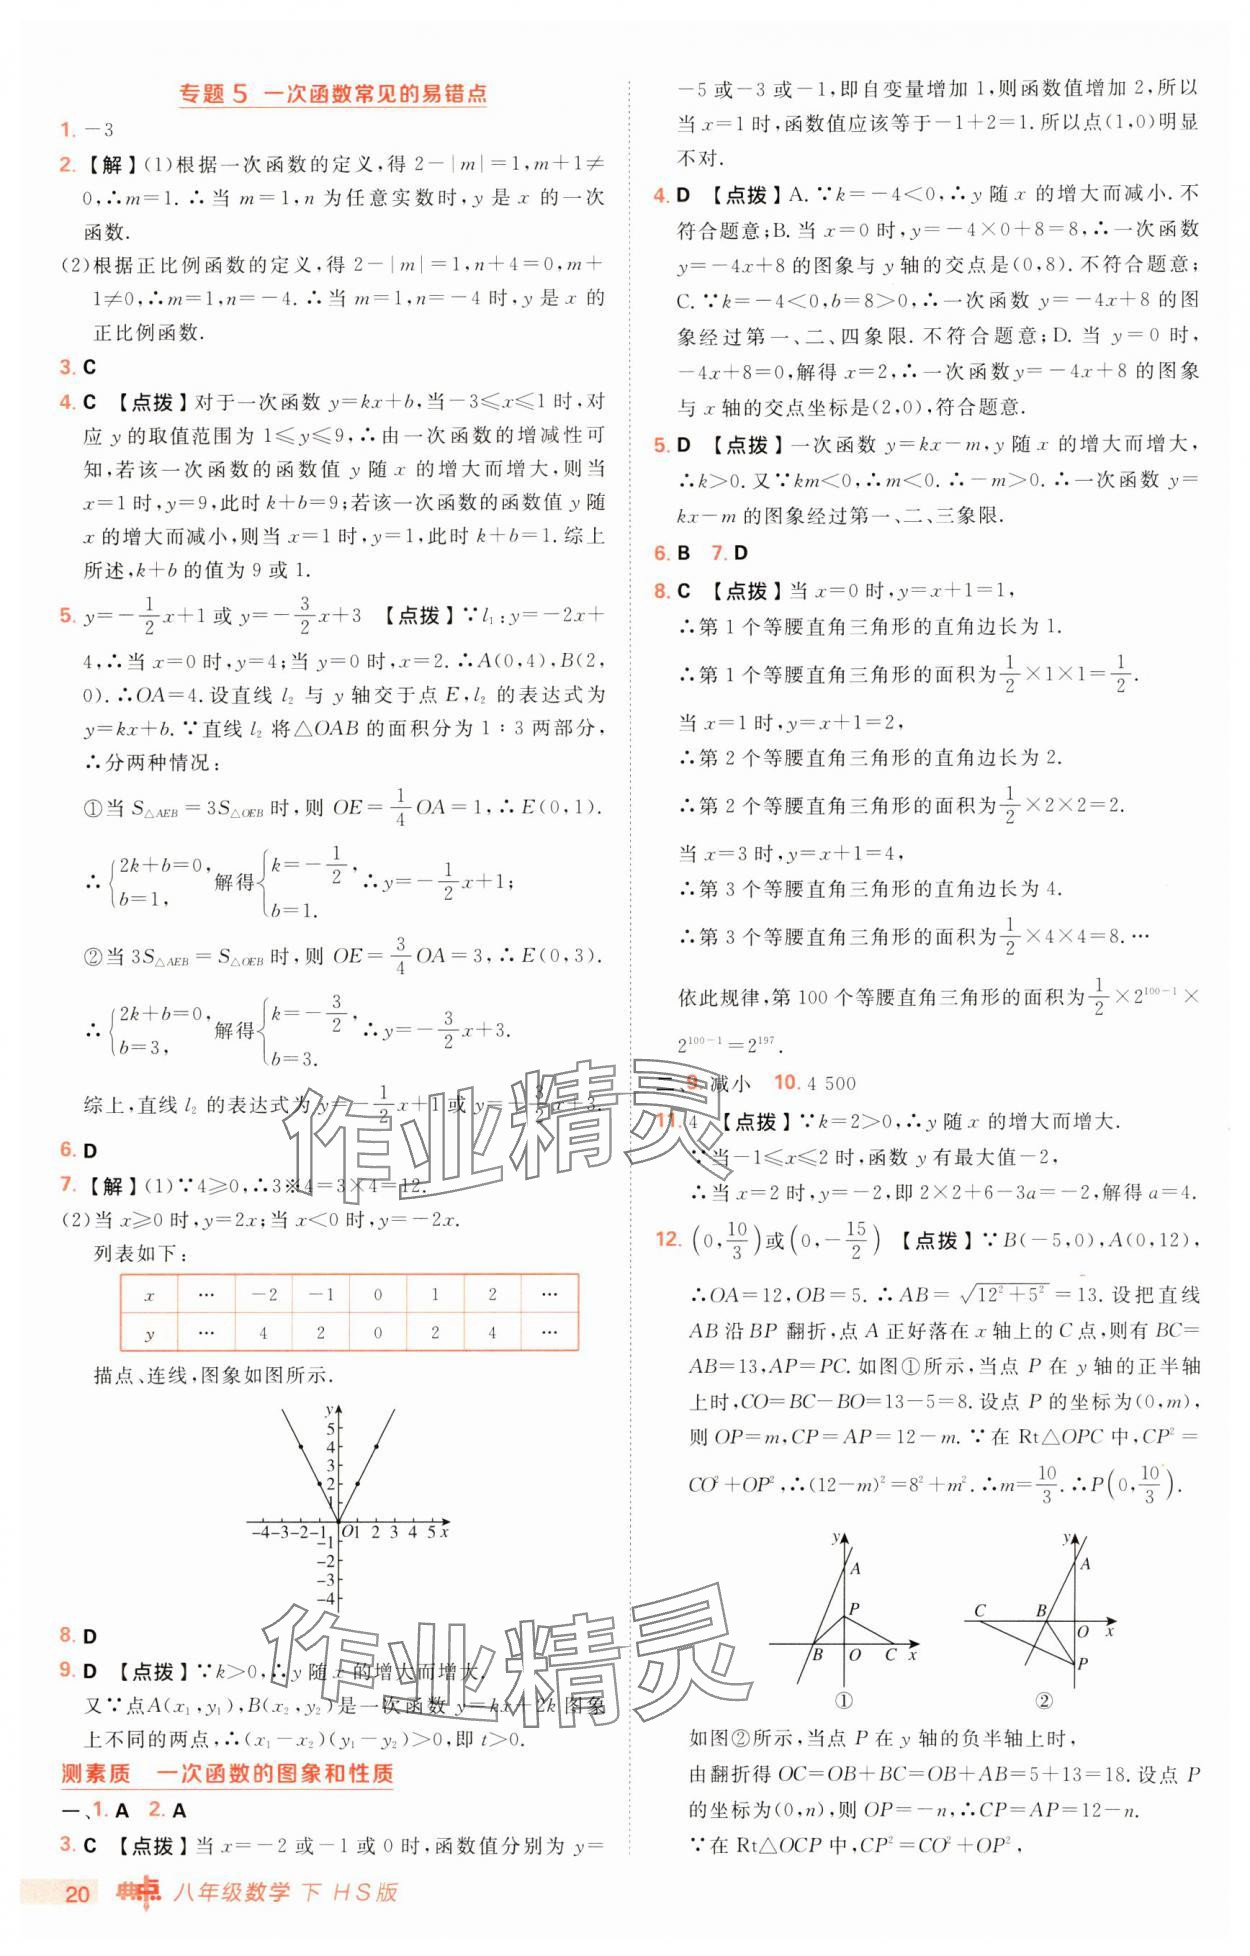 专题 5 一次函数常见的易错点
1. －3
2. 【解】(1)根据一次函数的定义,得 2－|m|=1,m＋1≠
0,∴m=1. ∴当 m=1,n 为任意实数时,y 是 x 的一次
函数.
(2)根据正比例函数的定义,得 2－|m|=1,n＋4=0,m＋
1≠0,∴m=1,n=－4. ∴当 m=1,n=－4 时,y 是 x 的
正比例函数.
3. C
4. C 【点拨】对于一次函数 y=kx＋b,当－3≤x≤1 时,对
应 y 的取值范围为 1≤y≤9,∴由一次函数的增减性可
知,若该一次函数的函数值 y 随 x 的增大而增大,则当
x=1 时,y=9,此时 k＋b=9;若该一次函数的函数值 y 随
x 的增大而减小,则当 x=1 时,y=1,此时 k＋b=1.综上
所述,k＋b 的值为 9 或 1.
5. y=－1/2 x＋1 或 y=－3/2 x＋3 【点拨】∵l₁:y=－2x＋
4,∴当 x=0 时,y=4;当 y=0 时,x=2. ∴A(0,4),B(2,
0). ∴OA=4. 设直线 l₂ 与 y 轴交于点 E,l₂ 的表达式为
y=kx＋b. ∵直线 l₂ 将△OAB 的面积分为 1∶3 两部分,
∴分两种情况:
①当 S△AEB=3S△OEB 时,则 OE=1/4 OA=1,∴E(0,1).
∴{2k＋b=0, b=1, 解得{k=－1/2, b=1. ∴y=－1/2 x＋1;
②当 3S△AEB=S△OEB 时,则 OE=3/4 OA=3,∴E(0,3).
∴{2k＋b=0, b=3, 解得{k=－3/2, b=3. ∴y=－3/2 x＋3.
综上,直线 l₂ 的表达式为 y=－1/2 x＋1 或 y=－3/2 x＋3.
6. D
7. 【解】(1)∵4≥0,∴3※4=3×4=12.
(2)当 x≥0 时,y=2x;当 x<0 时,y=－2x.
列表如下:
x … －2 －1 0 1 2 …
y … 4 2 0 2 4 …
描点、连线,图象如图所示.
y
5
4
3
2
1
-4 -3 -2 -1 O 1 2 3 4 5 x
-1
-2
-3
-4
8. D
9. D 【点拨】∵k>0,∴y 随 x 的增大而增大.
又∵点A(x₁,y₁),B(x₂,y₂)是一次函数 y=kx＋2k 图象
上不同的两点,∴(x₁－x₂)(y₁－y₂)>0,即 t>0.
测素质 一次函数的图象和性质
一、1. A 2. A
3. C 【点拨】当 x=－2 或－1 或 0 时,函数值分别为 y=
20 典中点 八年级数学 下 HS版
－5 或－3 或－1,即自变量增加 1,则函数值增加 2,所以
当 x=1 时,函数值应该等于－1＋2=1.所以点(1,0)明显
不对.
4. D 【点拨】A. ∵k=－4<0,∴y 随 x 的增大而减小. 不
符合题意;B. 当 x=0 时,y=－4×0＋8=8,∴一次函数
y=－4x＋8 的图象与 y 轴的交点是(0,8). 不符合题意;
C. ∵k=－4<0,b=8>0,∴一次函数 y=－4x＋8 的图
象经过第一、二、四象限. 不符合题意;D. 当 y=0 时,
－4x＋8=0,解得 x=2,∴一次函数y=－4x＋8 的图象
与 x 轴的交点坐标是(2,0),符合题意.
5. D 【点拨】∵一次函数 y=kx－m,y 随 x 的增大而增大,
∴k>0. 又∵km<0,∴m<0. ∴－m>0. ∴一次函数 y=
kx－m 的图象经过第一、二、三象限.
6. B 7. D
8. C 【点拨】当 x=0 时,y=x＋1=1,
∴第 1 个等腰直角三角形的直角边长为 1.
∴第 1 个等腰直角三角形的面积为1/2×1×1=1/2.
当 x=1 时,y=x＋1=2,
∴第 2 个等腰直角三角形的直角边长为 2.
∴第 2 个等腰直角三角形的面积为1/2×2×2=2.
当 x=3 时,y=x＋1=4,
∴第 3 个等腰直角三角形的直角边长为 4.
∴第 3 个等腰直角三角形的面积为1/2×4×4=8.…
依此规律,第 100 个等腰直角三角形的面积为1/2×2¹⁰⁰⁻¹×
2¹⁰⁰⁻¹=2¹⁹⁷.
二、9. 减小 10. 4 500
11. 4 【点拨】∵k=2>0,∴y 随 x 的增大而增大.
∵当－1≤x≤2 时,函数 y 有最大值－2,
∴当 x=2 时,y=－2,即 2×2＋6－3a=－2,解得 a=4.
12. (0,10/3)或(0,－15/2) 【点拨】∵B(－5,0),A(0,12),
∴OA=12,OB=5. ∴AB=√(12²＋5²)=13. 设把直线
AB 沿 BP 翻折,点 A 正好落在 x 轴上的 C 点,则有 BC=
AB=13,AP=PC. 如图①所示,当点 P 在 y 轴的正半轴
上时,CO=BC－BO=13－5=8. 设点 P 的坐标为(0,m),
则 OP=m,CP=AP=12－m. ∵在 Rt△OPC 中,CP²=
CO²＋OP²,∴(12－m)²=8²＋m². ∴m=10/3. ∴P(0,10/3).
y A P B O C x ①
y A C B O x P ②
如图②所示,当点 P 在 y 轴的负半轴上时,
由翻折得 OC=OB＋BC=OB＋AB=5＋13=18. 设点 P
的坐标为(0,n),则 OP=－n,∴CP=AP=12－n.
∵在 Rt△OCP 中,CP²=CO²＋OP²,
作业精灵
作业精灵